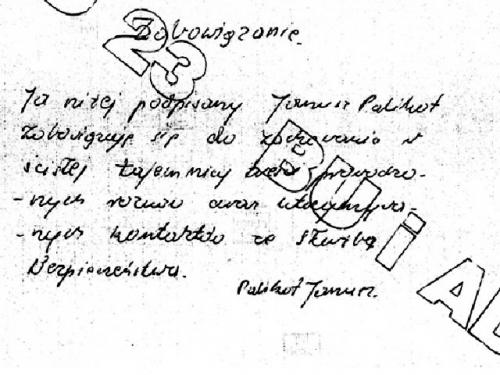 23
Zobowiązanie.
Ja niżej podpisany Janusz Palikot
zobowiązuję się do zachowania w
ścisłej tajemnicy treści prowadzo-
-nych rozmów oraz
-nych kontaktów ze Służbą
Bezpieczeństwa.
Palikot Janusz.
BU i AD